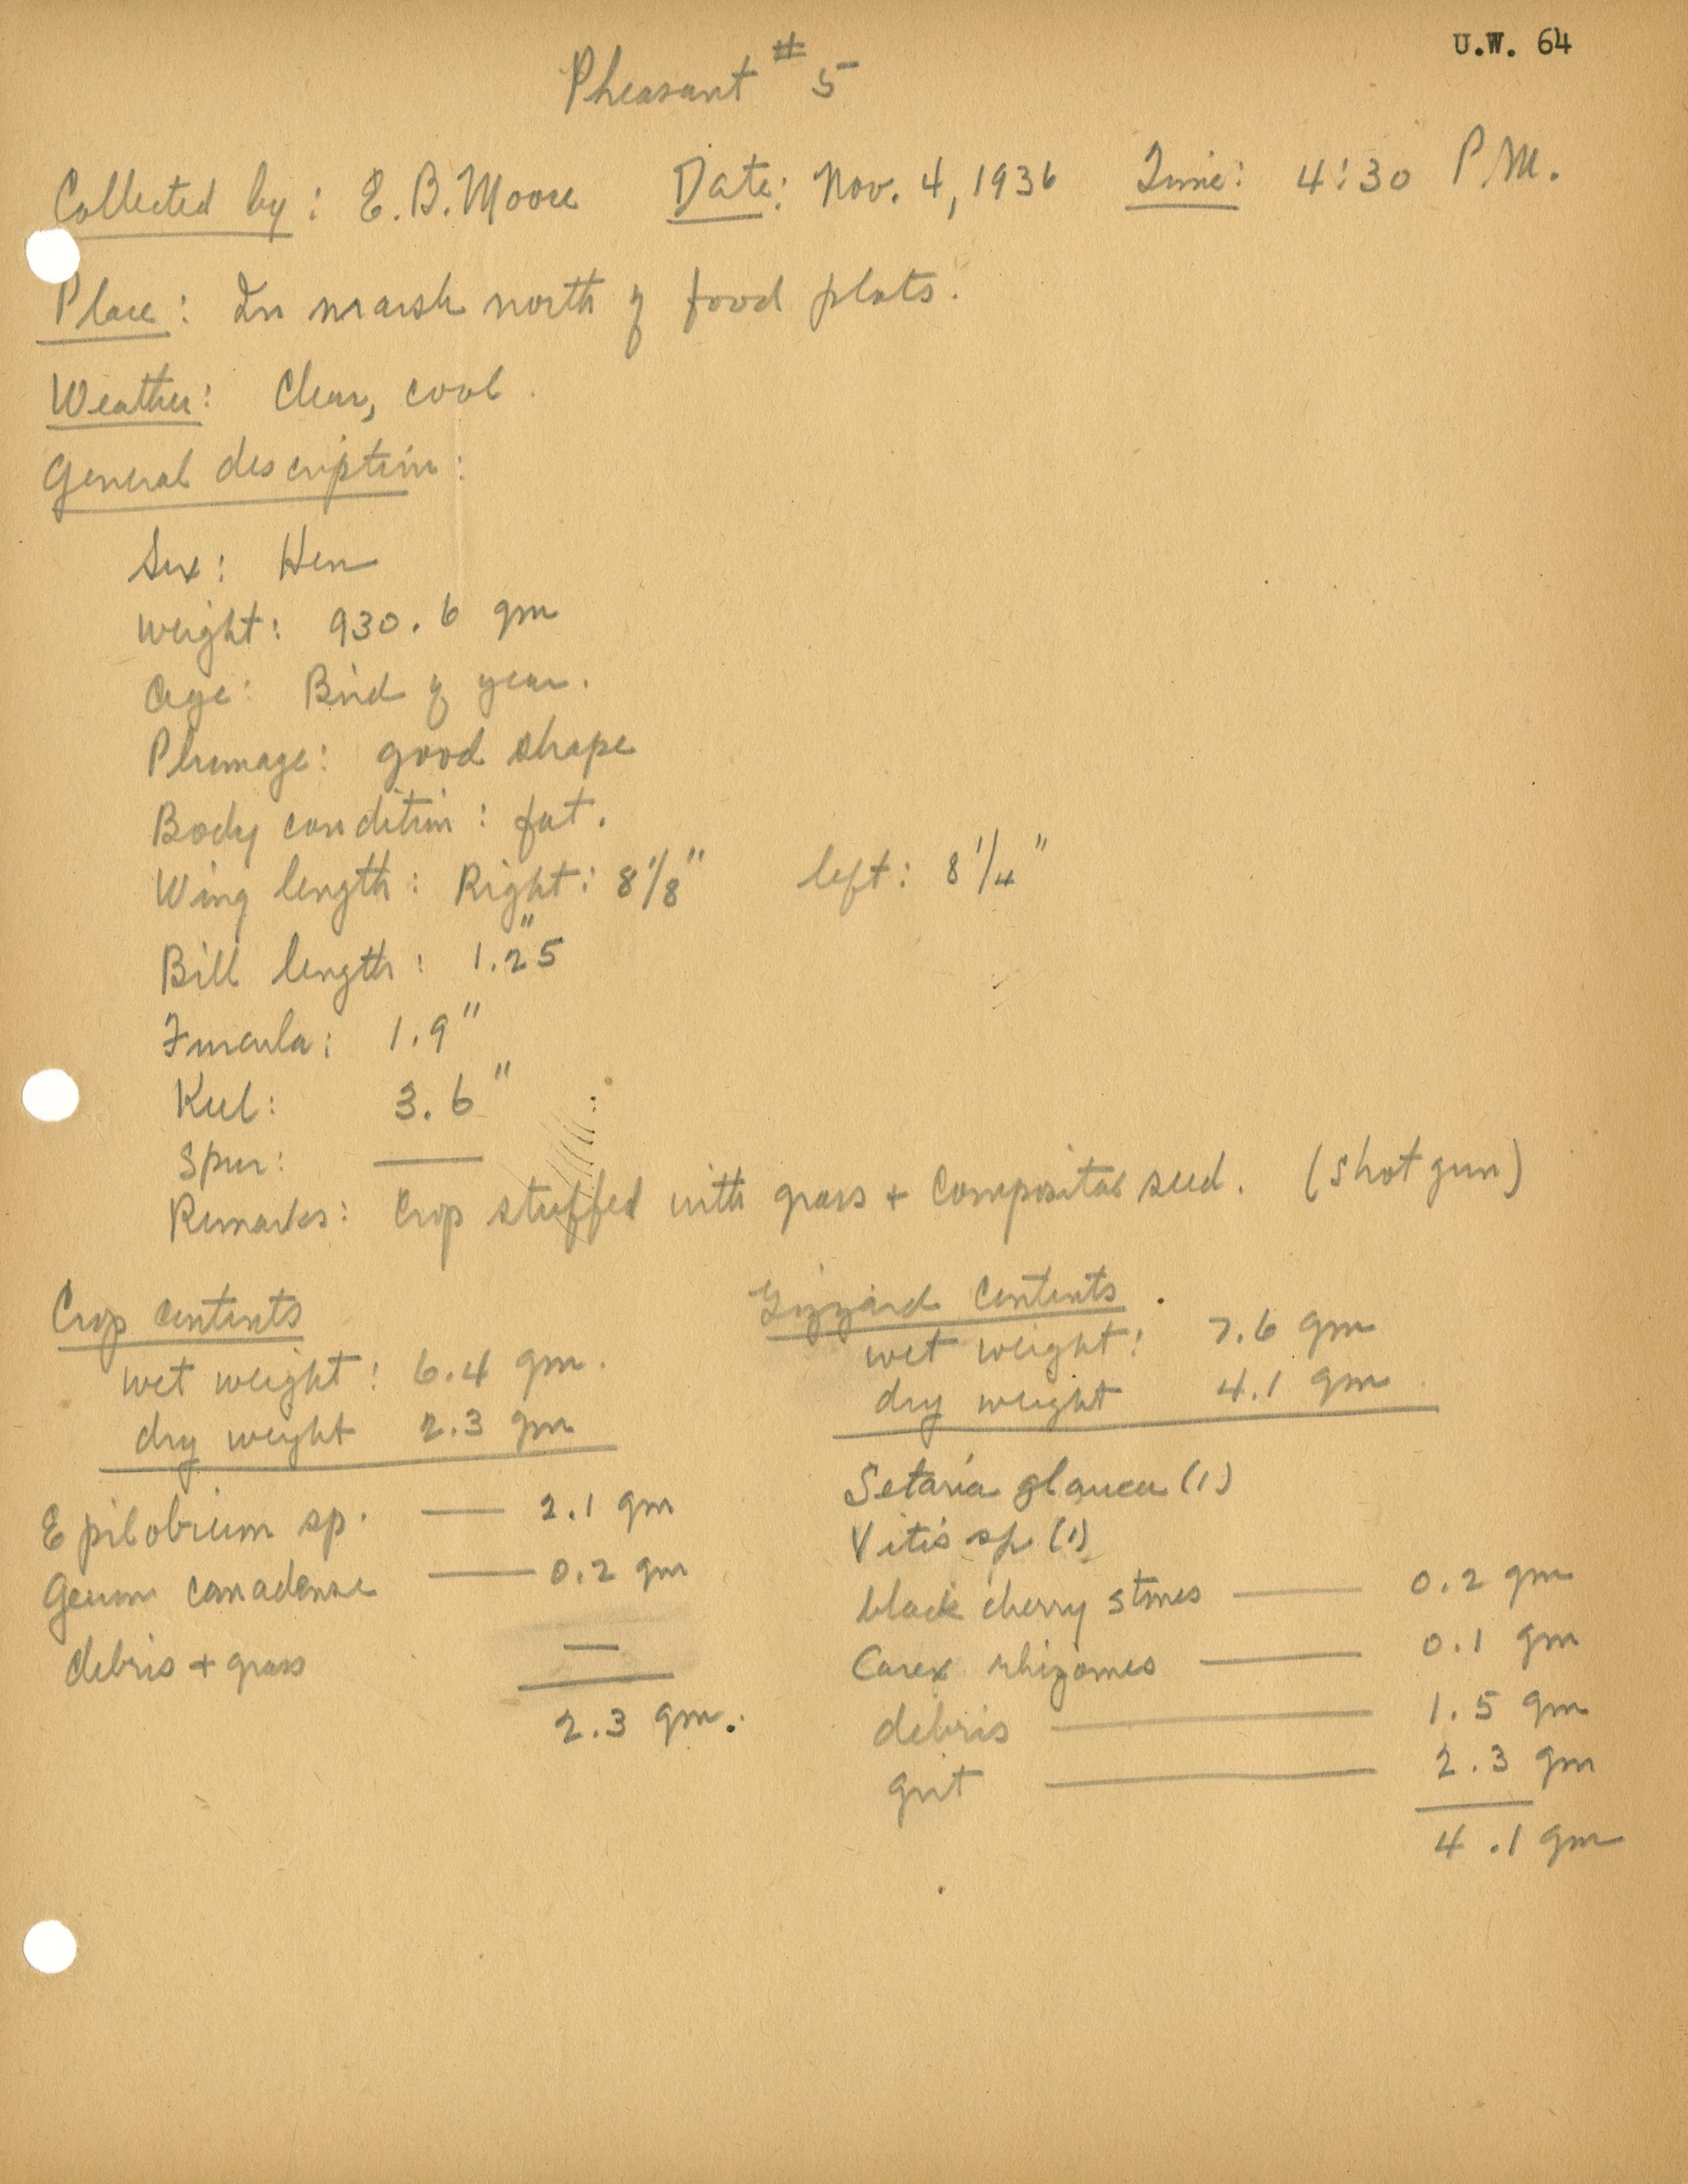 U.W. 64
Pheasant # 5
Collected by: E.B. Moore Date: Nov. 4, 1936 Time: 4:30 P.M.
Place: In marsh north of food plots.
Weather: Clear, cool.
General description:
Sex: Hen
Weight: 930.6 gm
Age: Bird of year.
Plumage: good shape
Body condition: fat.
Wing length: Right: 8 1/8" left: 8 1/4"
Bill length: 1."25
Furcula: 1.9"
Keel: 3.6"
Spur: —
Remarks: Crop stuffed with grass + Compositae seed. (Shot gun)
Crop contents
wet weight: 6.4 gm.
dry weight 2.3 gm
Epilobium sp. — 2.1 gm
Geum canadense — 0.2 gm
debris + grass —
2.3 gm.
Gizzard Contents.
wet weight: 7.6 gm
dry weight 4.1 gm
Setaria glauca (1)
Vitis sp (1)
black cherry stones — 0.2 gm
Carex rhizomes — 0.1 gm
debris — 1.5 gm
grit — 2.3 gm
4.1 gm